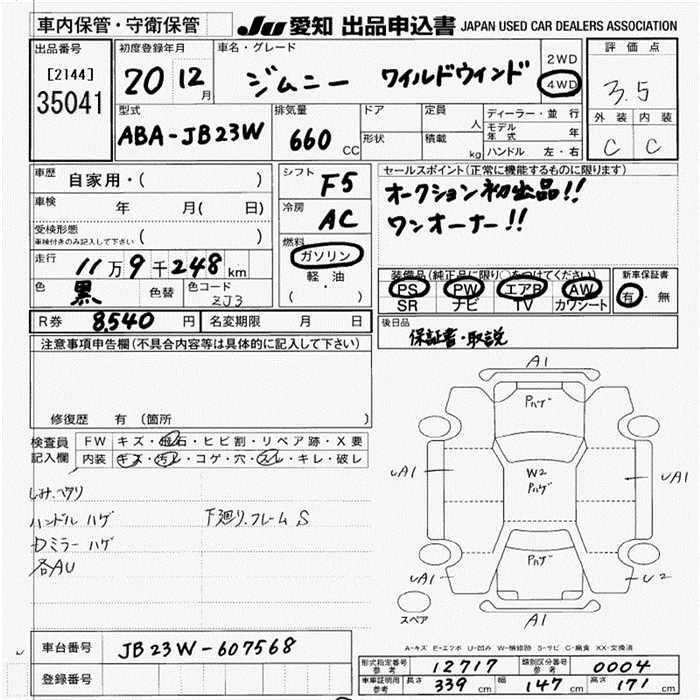 車内保管・守衛保管
JU 愛知 出品申込書 JAPAN USED CAR DEALERS ASSOCIATION
出品番号
[2144]
35041
初度登録年月
20 12月
車名・グレード
ジムニー ワイルドウインド
2WD
4WD
評価点
3.5
外装 内装
C C
型式
ABA-JB23W
排気量
660 CC
ドア
形状
定員 人
積載 kg
ディーラー・並行
モデル年式 年
ハンドル 左・右
車歴 自家用・( )
車検 年 月( 日)
受検形態
車検付きのみ記入して下さい ( )
走行 11万9千248km
色 黒 色替 色コード ZJ3
シフト F5
冷房 AC
燃料
ガソリン
軽・油
( )
セールスポイント(正常に機能するものに限ります)
オークション初出品!!
ワンオーナー!!
装備品(純正品に限り○をつけてください)
PS PW エアB AW
SR ナビ TV カワシート
新車保証書
有・無
R券 8,540円 名変期限 月 日
後日品
保証書・取説
注意事項申告欄(不具合内容等は具体的に記入して下さい)
修復歴 有(箇所 )
検査員記入欄
FW キズ・飛石・ヒビ割・リペア跡・X要
内装 キズ・汚レ・コゲ・穴・スレ・キレ・破レ
しみ.ヘタリ
ハンドル ハゲ 下廻り.フレームS
Dミラー ハゲ
各AU
A1
Pハゲ
A1 W2 A1
Pハゲ
Pハゲ
A1 U2
A1
スペア
A-キズ E-エクボ U-凹み W-補修跡 S-サビ C-腐食 XX-交換済
車台番号 JB23W-607568
登録番号
形式指定番号 参考 12717 類別区分番号 参考 0004
車庫証明用 参考 長さ 339cm 幅 147cm 高さ 171cm